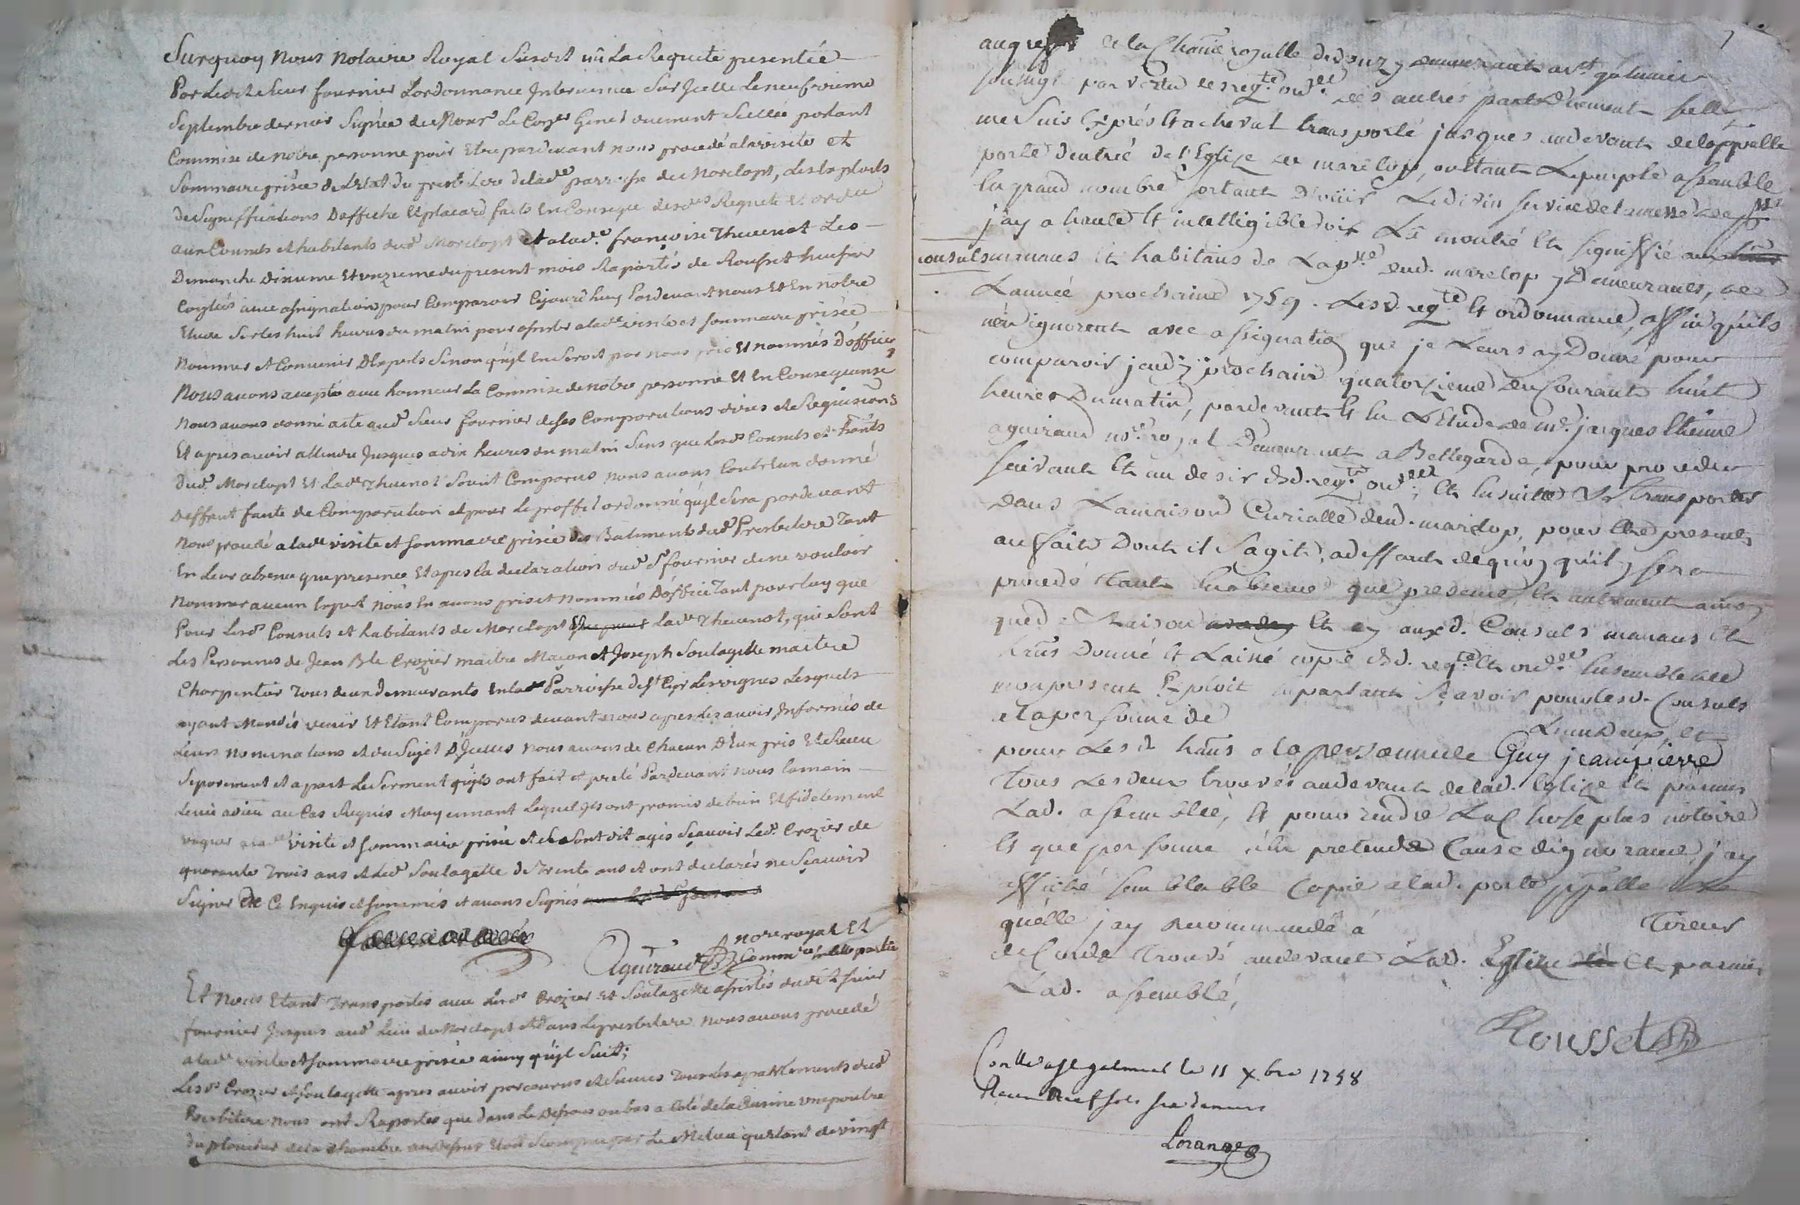 Surquoy Nous Notaire Royal Susdit vû La Requete presentée
Par Ledit Sieur fournier Lordonnance Intervenue Sur Jcelle Le neufvieme
Septembre dernier Signée de Monsr Le
Commise de notre personne pour Etre pardevant nous procedé a la visite et
Sommaire prisée de Letat du de lade parroisse de Marclopt, Les exploits
De Signiffications Daffiche Et placard faits En Conseqce desdes Requete et ordce
aux Consuls et habitants dud Marclopt et a lade françoise Thevenot Les
Dimanche Dixieme Et onzieme du present mois Raportés de Rousset huissier
avec assignation pour Comparoir Cejourdhuy Pardevant nous Et En notre
Etude Sur Les huit heures du matin pour assister a lade visite et Sommaire prisée
Nommer et Convenir DExperts Sinon quyl En Seroit par nous pris Et nommés Doffice
Nous avons accepté avec honneur La Commise de notre personne Et En Consequense
Nous avons donné acte aud Sieur fournier de ses Comparutions dires et Requisitions
Et apres avoir attendu Jusques a dix heures du matin Sans que Lesd Consuls et hants
Dud Marclopt Et Lade Thevenot Soient Comparus nous avons Contre Eux donné
Deffaut faute de Comparution et pour Le proffit ordonné quyl Sera pardevant
Nous procedé a lade visite et Sommaire prisée des Batiments dud Presbitere Tant
En Leur absence que presence Et apres la declaration dud Sr fournier de ne vouloir
Nommer aucun Expert Nous En avons pris et nommés Doffice Tant pour luy que
Pour Lesd Consuls et habitants de Marclopt Lade Thevenot, qui Sont
Les Personnes de Jean Bte Crozier maitre Maçon et Joseph Soulagette maitre
Charpentier Tous deux demeurants En la Parroisse de St Cyr Les vignes Lesquels
ayant Mandés venir Et Etant Comparus devant nous apres Les avoir Informés de
Leurs nominations et du Sujet DJcelles nous avons de Chacun DEux pris Et Receu
Separement et apart Le Serment quyls ont fait et preté Pardevant nous la main
Levée a dieu au Cas Requis Moyennant Lequel Jls ont promis de bien Et fidelement
vaquer a lade visite et Sommaire prisée et Se Sont dit agés Sçavoir Led Crozier de
quarante Trois ans et Led Soulagette de Trente ans et ont declarés ne Sçavoir
Signer De Ce Enquis et Sommés et avons Signés
Aguiraud nore royal Et
Commre En cette partie
Et Nous Etant Transportés avec Lesds Crozier Et Soulagette assistés dudit Sieur
fournier Jusques aud Lieu de Marclopt et dans Le presbitere nous avons procedé
a lade visite et Sommaire prisée ainsy quyl Suit;
Lesds Crozier et Soulagette apres avoir parcourus et Tous Les apartements dud
Presbitere nous ont Raportés que dans Le Dessous ou bas a Coté de la Cuisine une poutre
du plancher de la Chambre au Dessus Est Par Le Milieu quetant de vingt
7
au greffe de la royalle de donzy
soussigné par vertu des reqte ordce des autres parts Duement scelle
me Suis Exprés et a cheval transporté jusques audevant de la ppalle
porte dentrée de lEglize de marclop, ou Etant Le peuple assemblé
En grand nombre sortant Douir Le divin service de la messe
j'ay a haute et intelligible voix Lû montré Et signiffié aux
consuls manans Et habitans de La psse dud. marclop y Demeurants,
Lannée prochaine 1759. Lesd. reqte et ordonnance, affin quils
nen ignorent avec assignation que je Leurs ay Donné pour
comparoir jeudy prochain quatorzieme du Courant huit
heures Du matin, pardevant et En LEtude de me. jacques Etienne
aguiraud nore. royal Demeurant a Bellegarde, pour proceder
suivant Et au desir desd. reqte ordce, Et Ensuitte Se transporter
dans La maison Curialle dud. marclop, pour Etre presents
au fait Dont il Sagit, a deffaut de quoy quil y sera
procedé tant En absence que presence, Et autrement ainsy
que de Raison Et ay auxd. Consuls manans Et
hans Donné et Laissé copie desd. reqte. Et ordce. Ensemble de
mon present Exploit En parlant Scavoir pour lesd. Consuls
a la personne de Lun Deux, et
pour Lesd. hans a la personne de Guy jeanpierre
tous Les deux trouvés audevant de lad. Eglize Et parmi
Lad. assemblée, et pour rendre La Chose plus notoire
Et que personne nen pretende Cause dignorance, j'ay
affiché semblable Copie a lad. porte ppalle
quelle j'ay recommandé á Tireur
de Corde trouvé audevant Lad. Eglize Et parmi
Lad. assemblé,
Rousset
Conllé a St galmier le 11 Xbre 1758
Receu Neuf sols six deniers
Lorange